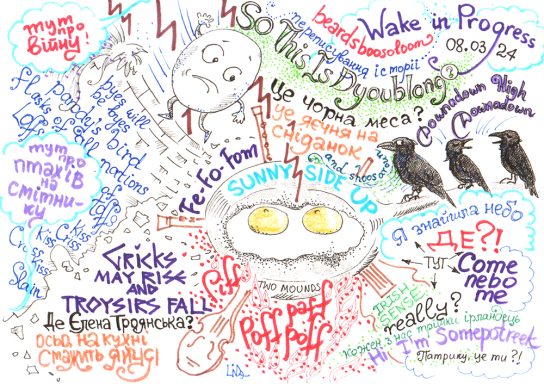 тут
про
війну!
So This Is Dyoublong?
переписування історії
beardsboosoloom
Wake in Progress
08.03 24
Це чорна меса?
Це яєчня на
сніданок
and shoos
High
Downadown
Downadown
byes will
be byes
parody's bird
flasks of all nations
taffs
тут про
птахів
на
смітни-
ку
Kiss
Criss
Kiss
Criss
Cross
Kiss
Slain
Fe-Fo-Fom
SUNNY SIDE UP
TWO MOUNDS
Gricks
MAY RISE
AND
TROYSIRS FALL
Де Єлена Троянська?
ось на кухні
смажить яйці
Piff
Paff
Poff
Я знайшла небо
ДЕ?!
ТУТ
Come
nebo
me
IRISH
SENSE
really?
кожен з нас трішки ірландець
Hi I'm Somepotreek
Патрику, це ти ?!